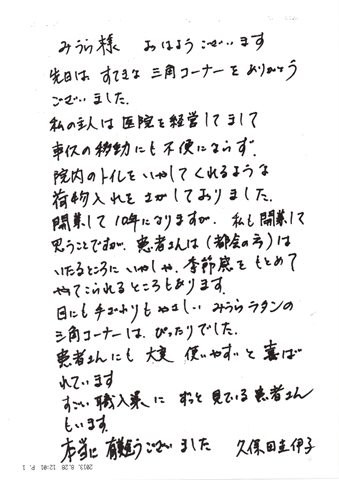 みうら様 おはようございます
先日は すてきな 三角コーナーを ありがとう
ございました.
私の主人は 医院を経営してまして
車イスの移動にも 不便にならず.
院内のトイレを いやしてくれるような
荷物入れを さがしておりました.
開業して 10年になりますが. 私も開業して
思うことですが. 患者さんは (都会の方)は
いたるところに いやしや. 季節感を もとめて
やってこられる ところもあります.
目にも 手ざわりも やさしい みうらラタンの
三角コーナーは. ぴったりでした.
患者さんにも 大変 使いやすいと 喜ば
れています
すごい 職人業に ずっと 見ている 患者さん
もいます.
本当に 有難うございました 久保田 伊子
2013. 8.20 12:01 P. 1